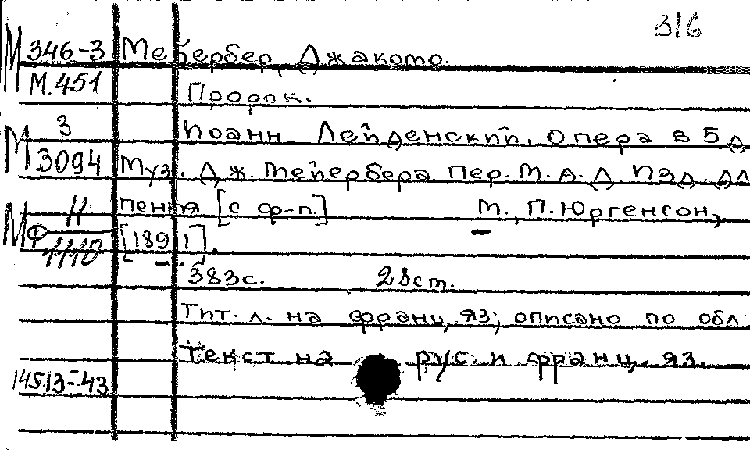 316
М 346-3 Мейербер, Джакомо.
М.451 Пророк.
3 Иоанн Лейденский. Опера в 5 д.
М 3094 Муз. Дж. Мейербера Пер. М. Д. Изд. дл
МФ 11 пения [с ф-п.] М., П. Юргенсон,
1110 [1891].
383с. 28см.
Тит. л. на франц. яз; описано по обл.
Текст на рус. и франц. яз.
14513-43